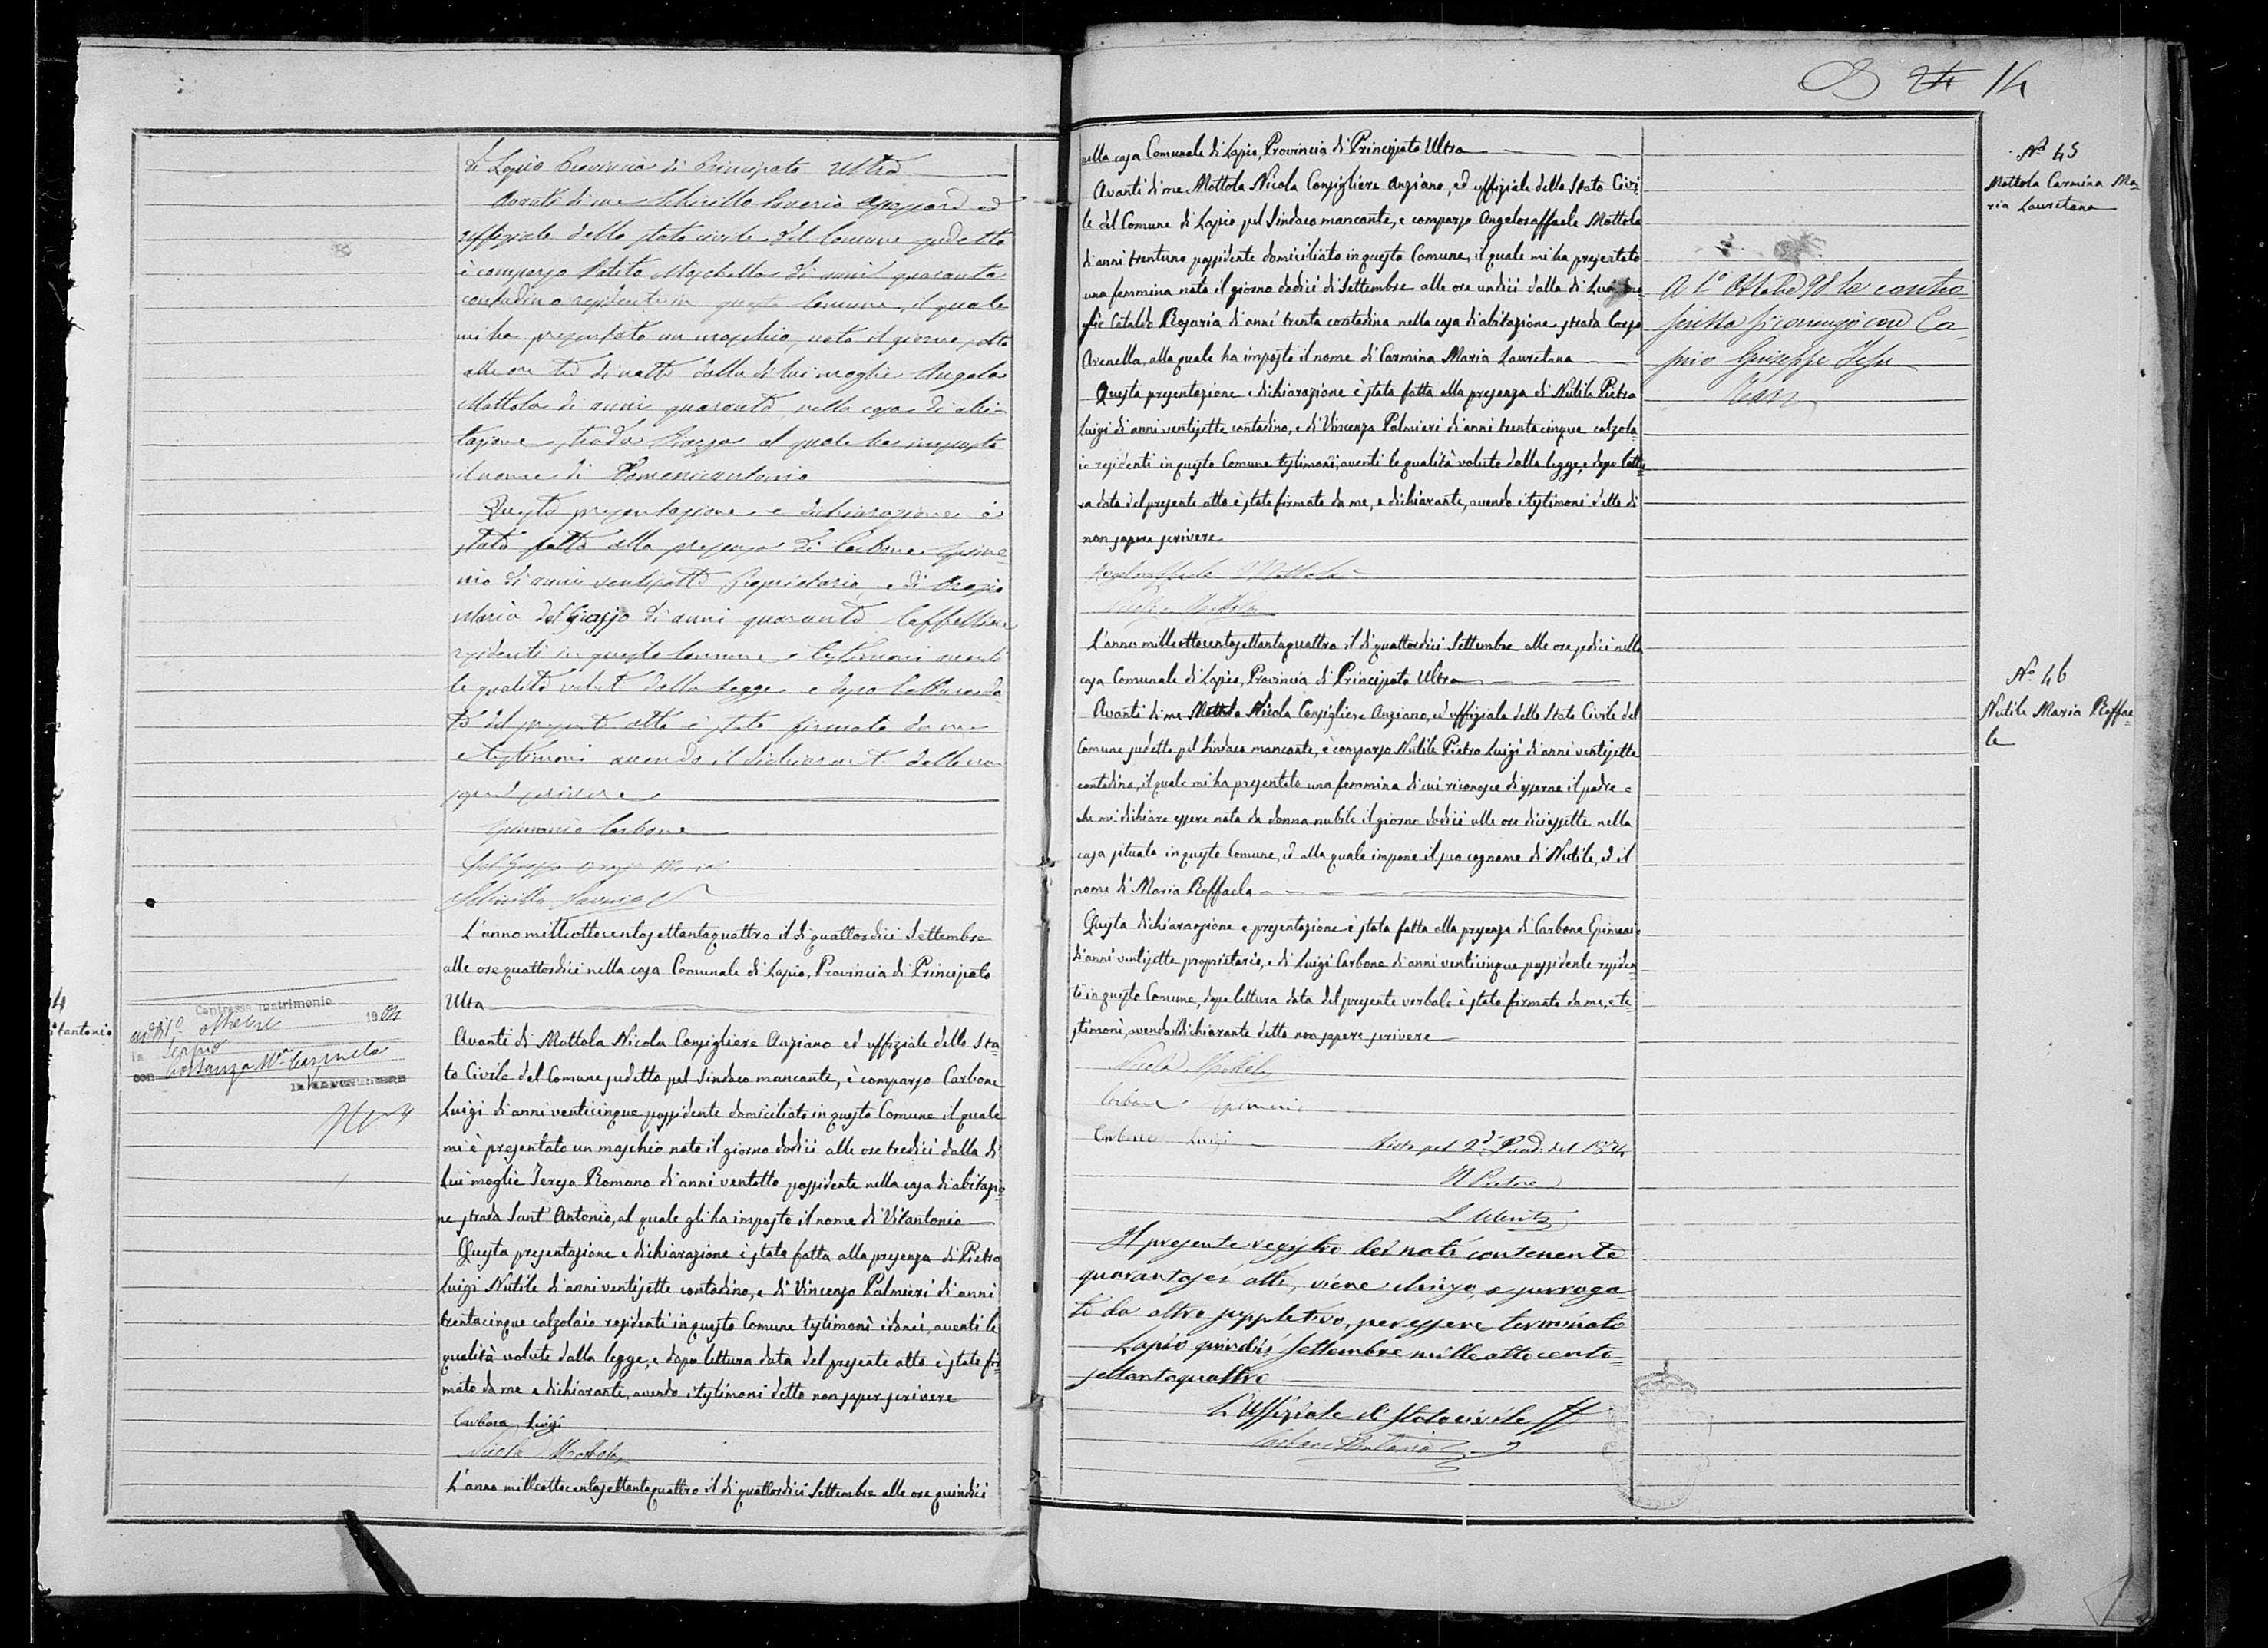 di Lapio Provincia di Principato Ultra
Avanti di me Schirillo Saverio Assessore ed
uffiziale dello stato civile del Comune sudetto
è comparso Polito Moschella di anni quaranta
contadino residente in questo Comune, il quale
mi ha presentato un maschio, nato il giorno otto
alle ore tre di notte dalla di lui moglie Angela
Mattola di anni quaranta nella casa di abi-
tazione strada Piazza al quale ha imposto
il nome di Domenicantonio
Questa presentazione e dichiarazione è
stata fatta alla presenza di Carbone Epime-
nio di anni ventisette proprietario, e di Orazio
Maria Del Grasso di anni quaranta Caffettiere
residenti in questo Comune e testimoni aventi
le qualità volute dalla legge e dopo lettura da-
ta del presente atto è stato firmato da me
e testimoni avendo il dichiarante detto non
sapere scrivere
Epimenio Carbone
Del Grasso Orazio Maria
Schirillo Saverio
L'anno milleottocentosettantaquattro il di quattordici Settembre
alle ore quattordici nella casa Comunale di Lapio, Provincia di Principato
Ulta
Avanti di Mottola Nicola Consigliere Anziano ed uffiziale dello Sta-
to Civile del Comune sudetto pel Sindaco mancante, è comparso Carbone
Luigi di anni venticinque possidente domiciliato in questo Comune il quale
mi è presentato un maschio nato il giorno dodici alle ore tredici dalla di
lui moglie Teresa Romano di anni ventotto possidente nella casa di abitazio-
ne strada Sant'Antonio, al quale gli ha imposto il nome di Vitantonio
Questa presentazione e dichiarazione è stata fatta alla presenza di Pietro
Luigi Nutile di anni ventisette contadino, e di Vincenzo Palmieri di anni
trentacinque calzolaio residenti in questo Comune testimoni idonei, aventi le
qualità volute dalla legge, e dopo lettura data del presente atto è stato fir-
mato da me e dichiarante, avendo i testimoni detto non saper scrivere
Carbone Luigi
Nicola Mottola
L'anno milleottocentosettantaquattro il di quattordici Settembre alle ore quindici
4
itantonio
Contrasse matrimonio
addi 1º ottobre 1904
in Lapio
con Costanza Mª Carmela
14
nella casa Comunale di Lapio, Provincia di Principato Ultra
Avanti di me Mottola Nicola Consigliere Anziano, ed uffiziale dello Stato Civi
le del Comune di Lapio pel Sindaco mancante, è comparso Angeloraffaele Mottola
di anni trentuno possidente domiciliato in questo Comune, il quale mi ha presentato
una femmina nata il giorno dodici di Settembre alle ore undici dalla di Lui mo
glie Cataldo Rosaria di anni trenta contadina nella casa d'abitazione strada Corso
Avenella, alla quale ha imposto il nome di Carmina Maria Lauretana
Questa presentazione e dichiarazione è stata fatta alla presenza di Nutile Pietro
Luigi di anni ventisette contadino, e di Vincenzo Palmieri di anni trentacinque calzola-
io residenti in questo Comune testimoni, aventi le qualità volute dalla legge, e dopo lettu-
ra data del presente atto è stato firmato da me, e dichiarante, avendo i testimoni detto di
non sapere scrivere
Angeloraffaele Mottola
Nicola Mottola
L'anno milleottocentosettantaquattro il di quattordici Settembre alle ore sedici nella
casa Comunale di Lapio, Provincia di Principato Ultra
Avanti di me Mottola Nicola Consigliere Anziano, ed uffiziale dello Stato Civile del
Comune sudetto pel Sindaco mancante, è comparso Nutile Pietro Luigi di anni ventisette
contadino, il quale mi ha presentato una femmina di cui riconosce di esserne il padre e
che mi dichiara essere nata da donna nubile il giorno dodici alle ore diciassette nella
casa situata in questo Comune, ed alla quale impone il suo cognome di Nutile, ed il
nome di Maria Raffaela
Questa dichiarazione e presentazione è stata fatta alla presenza di Carbone Epimenio
di anni ventisette proprietario, e di Luigi Carbone di anni venticinque possidente residen-
ti in questo Comune, dopo lettura data del presente verbale è stato firmato da me, e te-
stimoni, avendo il dichiarante detto non sapere scrivere
Nicola Mottola
Carbone Epimenio
Carbone Luigi
Visto pel 2º Quad. del 1874
Il Pretore
Il presente registro dei nati contenente
quarantasei atti, viene chiuso, e surroga-
to da altro suppletivo, per essere terminato
Lapio quindici Settembre mille ottocento-
settantaquattro
L'Uffiziale di stato civile ff
Carbone Antonio
A 1º Ottobre 98 la contro-
scritta si coniugò con Ca-
prio Giuseppe
Nº 45
Mottola Carmina Ma-
ria Lauretana
Nº 46
Nutile Maria Raffae-
la